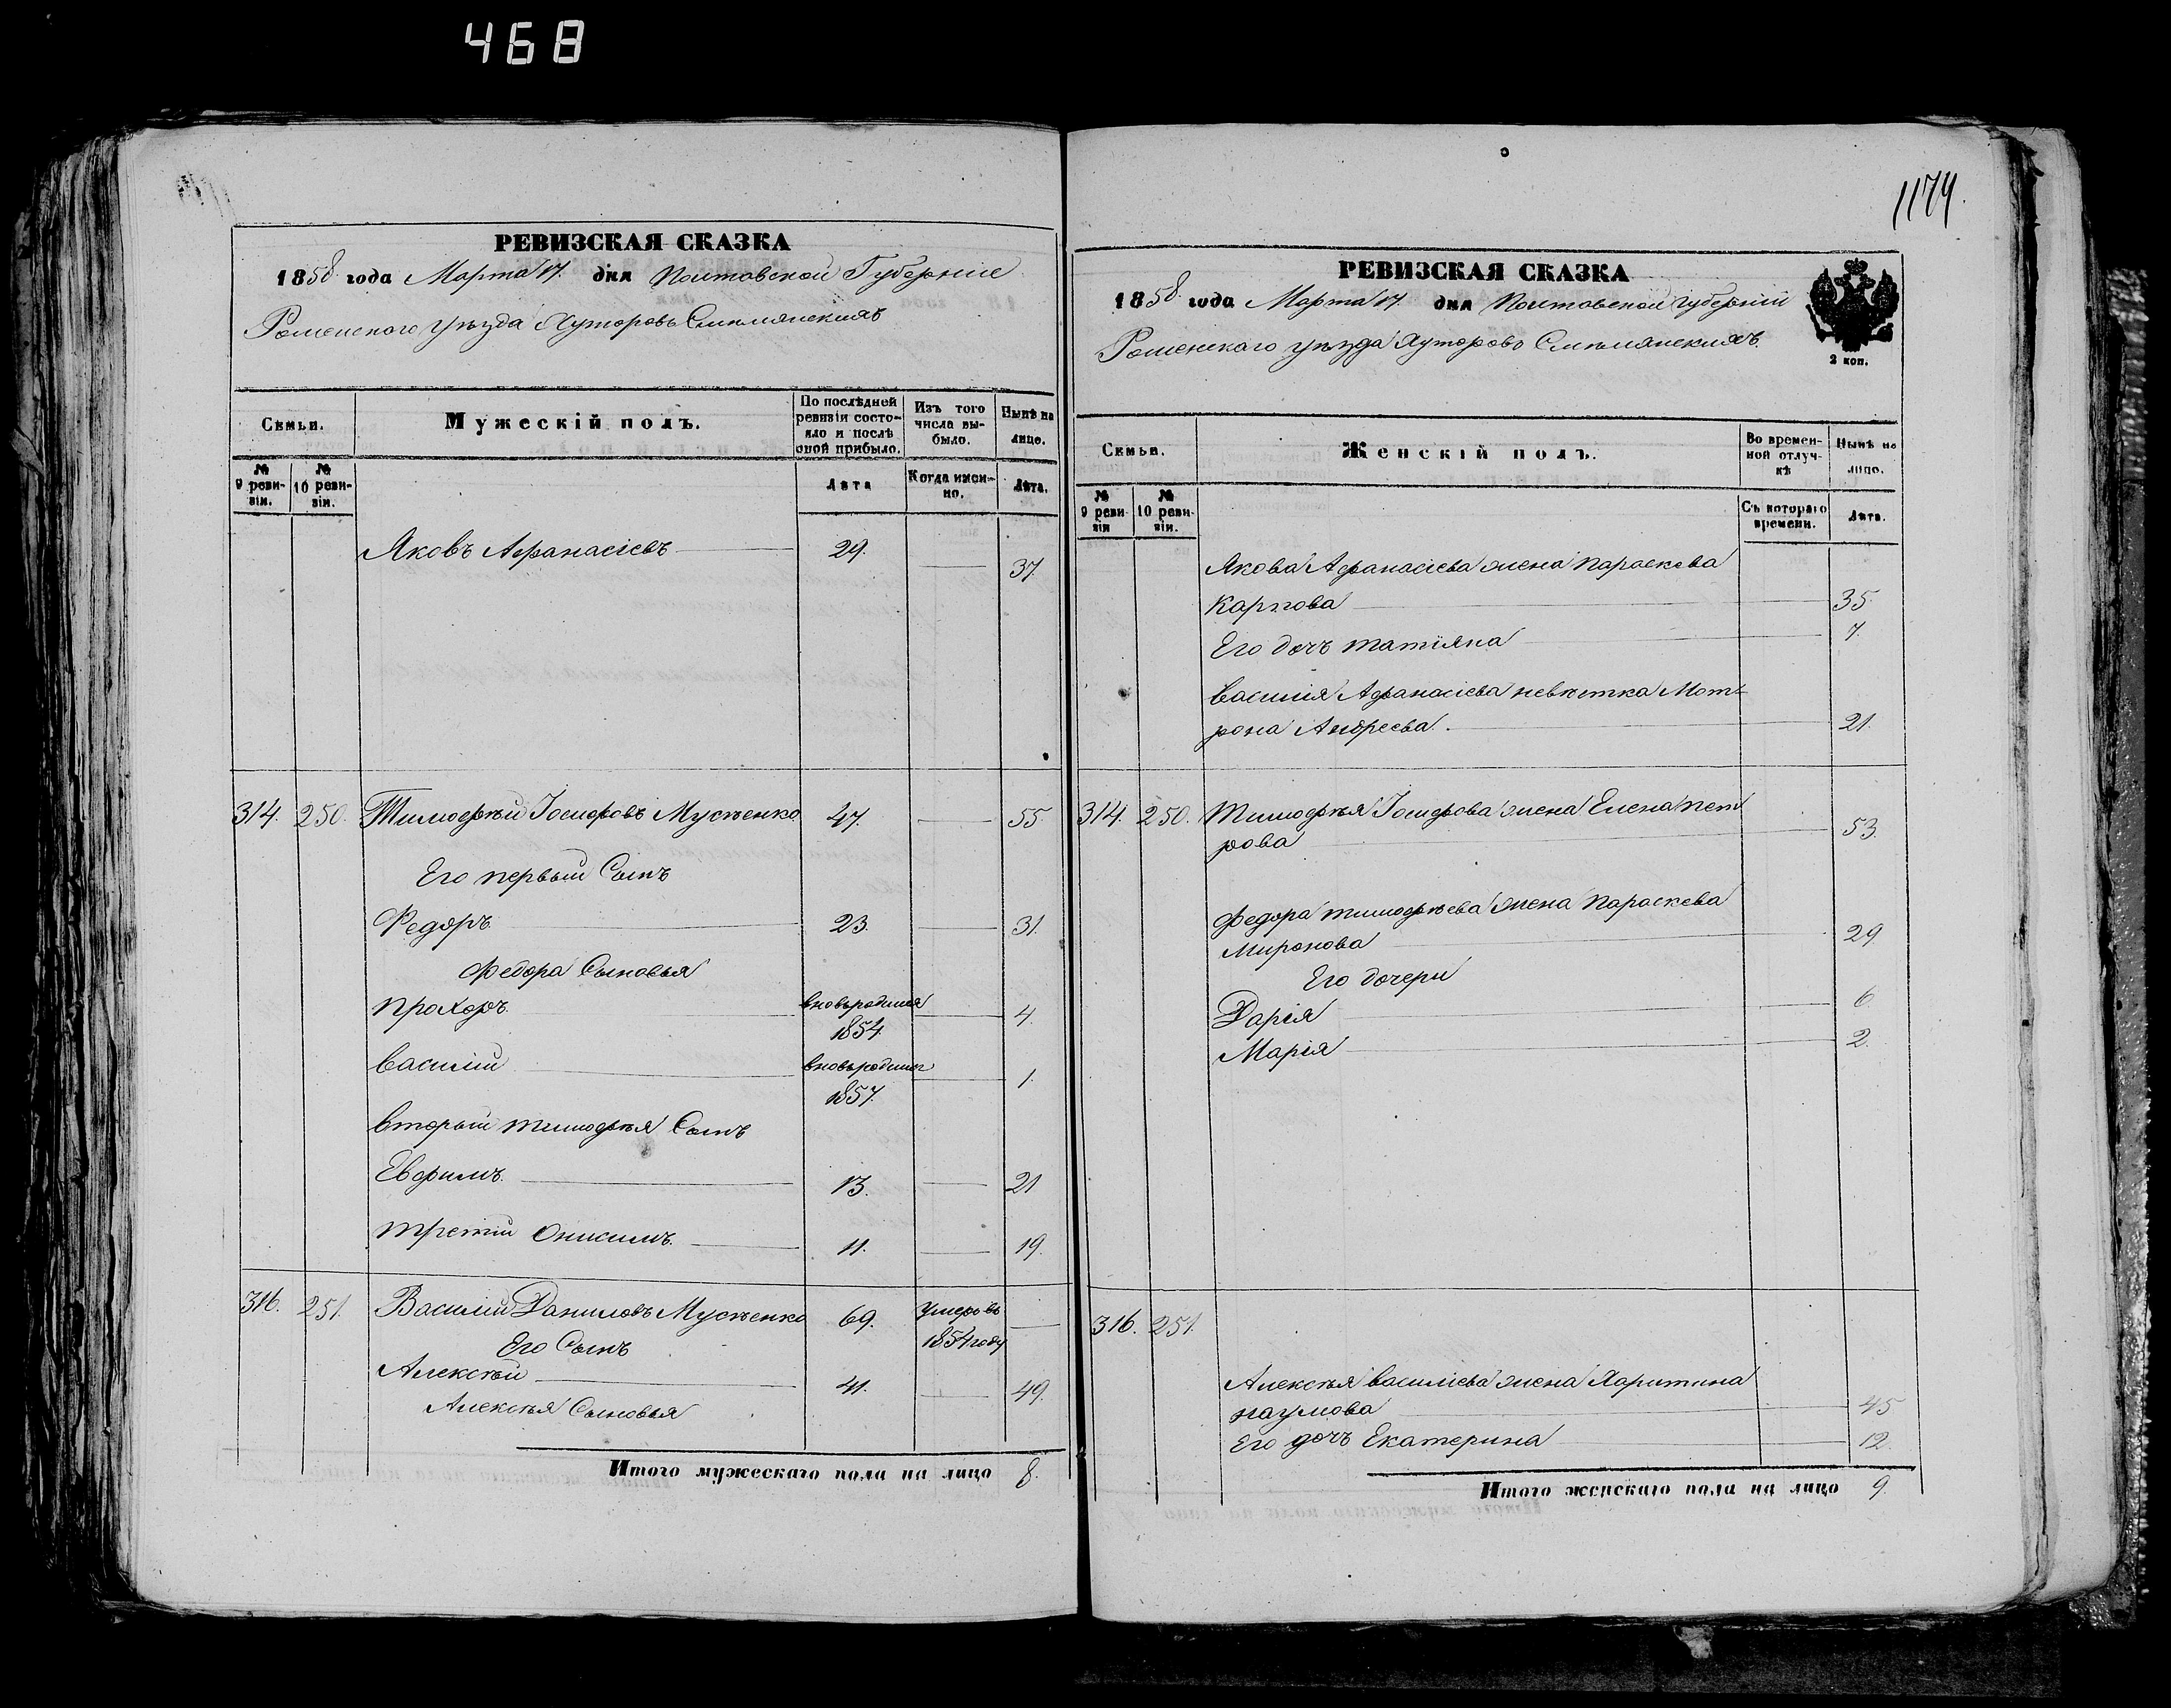 468
РЕВИЗСКАЯ СКАЗКА
1858 года Марта 17. дня Полтавской Губерніе
Роменского уѣзда Хуторовъ Смѣлянскихъ
Семьи.
Мужескій полъ.
По послѣдней ревизіи состояло и послѣ оной прибыло.
Изъ того числа выбыло.
Нынѣ на лицо.
№ 9 ревизіи.
№ 10 ревизіи.
Лѣта
Когда именно.
Лѣта.
Яковъ Афанасіевъ 29. 37.
314. 250. Тимофѣй Іосифовъ Мусѣенко 47. 55
Его первый Сынъ
Федоръ 23. 31.
Федора Сыновья
Прохоръ вновьродился 4.
1854.
Василій вновьродился 1.
1857.
Вторый Тимофѣя Сынъ
Евфимъ. 13. 21
третій Онисимъ. 11. 19.
316. 251. Василій Даниловъ Мусѣенко 69. Умеръ въ
1854 году
Его Сынъ
Алексѣй 41. 49.
Алексѣя Сыновья
Итого мужескаго пола на лицо 8.
1174.
РЕВИЗСКАЯ СКАЗКА
1858 года Марта 17. дня Полтавской губерніи
Роменскаго уѣзда Хуторовъ Смѣлянскихъ.
2 коп.
Семьи.
Женскій полъ.
Во временной отлучкѣ
Нынѣ на лицо.
№ 9 ревизіи
№ 10 ревизіи.
Съ котораго времени.
Лѣта.
Якова Афанасіева жена Параскева
Карпова 35.
Его дочъ Татіяна 7.
Василія Афанасіева невѣстка Мот-
рона Андреева. 21.
314. 250. Тимофѣя Іосифова жена Елена Пет
рова 53.
Федора Тимофѣева жена Параскева
Миронова 29
Его дочери
Дарія 6
Марія 2.
316. 251.
Алексѣя Василіева жена Харитина
Наумова 45
Его дочъ Екатерина 12.
Итого женскаго пола на лицо 9.